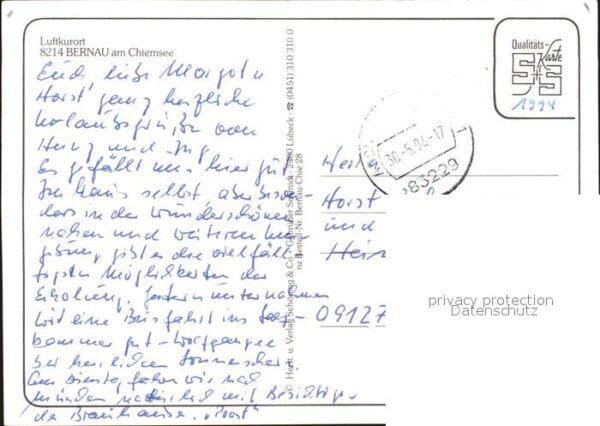 Luftkurort
8214 BERNAU am Chiemsee
Euch, liebe Margot u
Horst, ganz herzliche
Urlaubsgrüße von
Heinz und
Es gefällt uns hier gut
Im Haus selbst, aber beson-
ders in der wunderschönen
nahen und weiteren Um-
gebung gibt es die vielfäl-
tigsten Möglichkeiten der
Erholung. Gestern unternahmen
wir eine Busfahrt ins
kammer gut - Wolfgangsee
bei herrlichem Sonnenschein.
Am Dienstag fahren wir nach
München natürlich mit Besichtigg.
der Brauhäuser. "Prost"
© Horst u. Verlag Schöning & Co · Gebrüder Schmidt · 2400 Lübeck · ☎ (0451) 310 310 0
nz Bestell-Nr. Bernau-Chie 28
Qualitäts-
Karte
1994
30.-5.04-17
83229
Horst
und
09127
privacy protection
Datenschutz